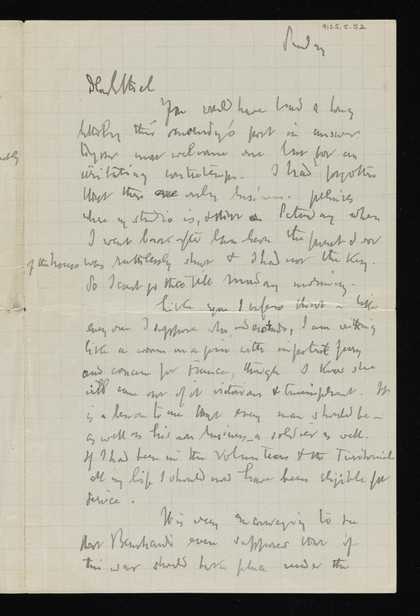 9125.5.52
Sunday
You would have had a long
letter by this morning's post in answer
to your most welcome one but for an
irritating contretemps. I had forgotten
that this are only business premises
where my studio is, & on Saturday when
I went back after luncheon the front door
of the house was ruthlessly shut & I had not the key.
So I can't get there till Monday morning.
Like you I suppose &
every one I suppose who understands, I am
like a worm on a pin with impotent fury
and concern for France, though I know she
will come out of it victorious & triumphant. It
is a lesson to me that every man should be —
as well as his own business — a soldier as well.
If I had been in the Volunteers & the Territorials
all my life I should now have been eligible for
service.
It is very encouraging to see
that Bernhardi even supposes that if
this war should take place under the